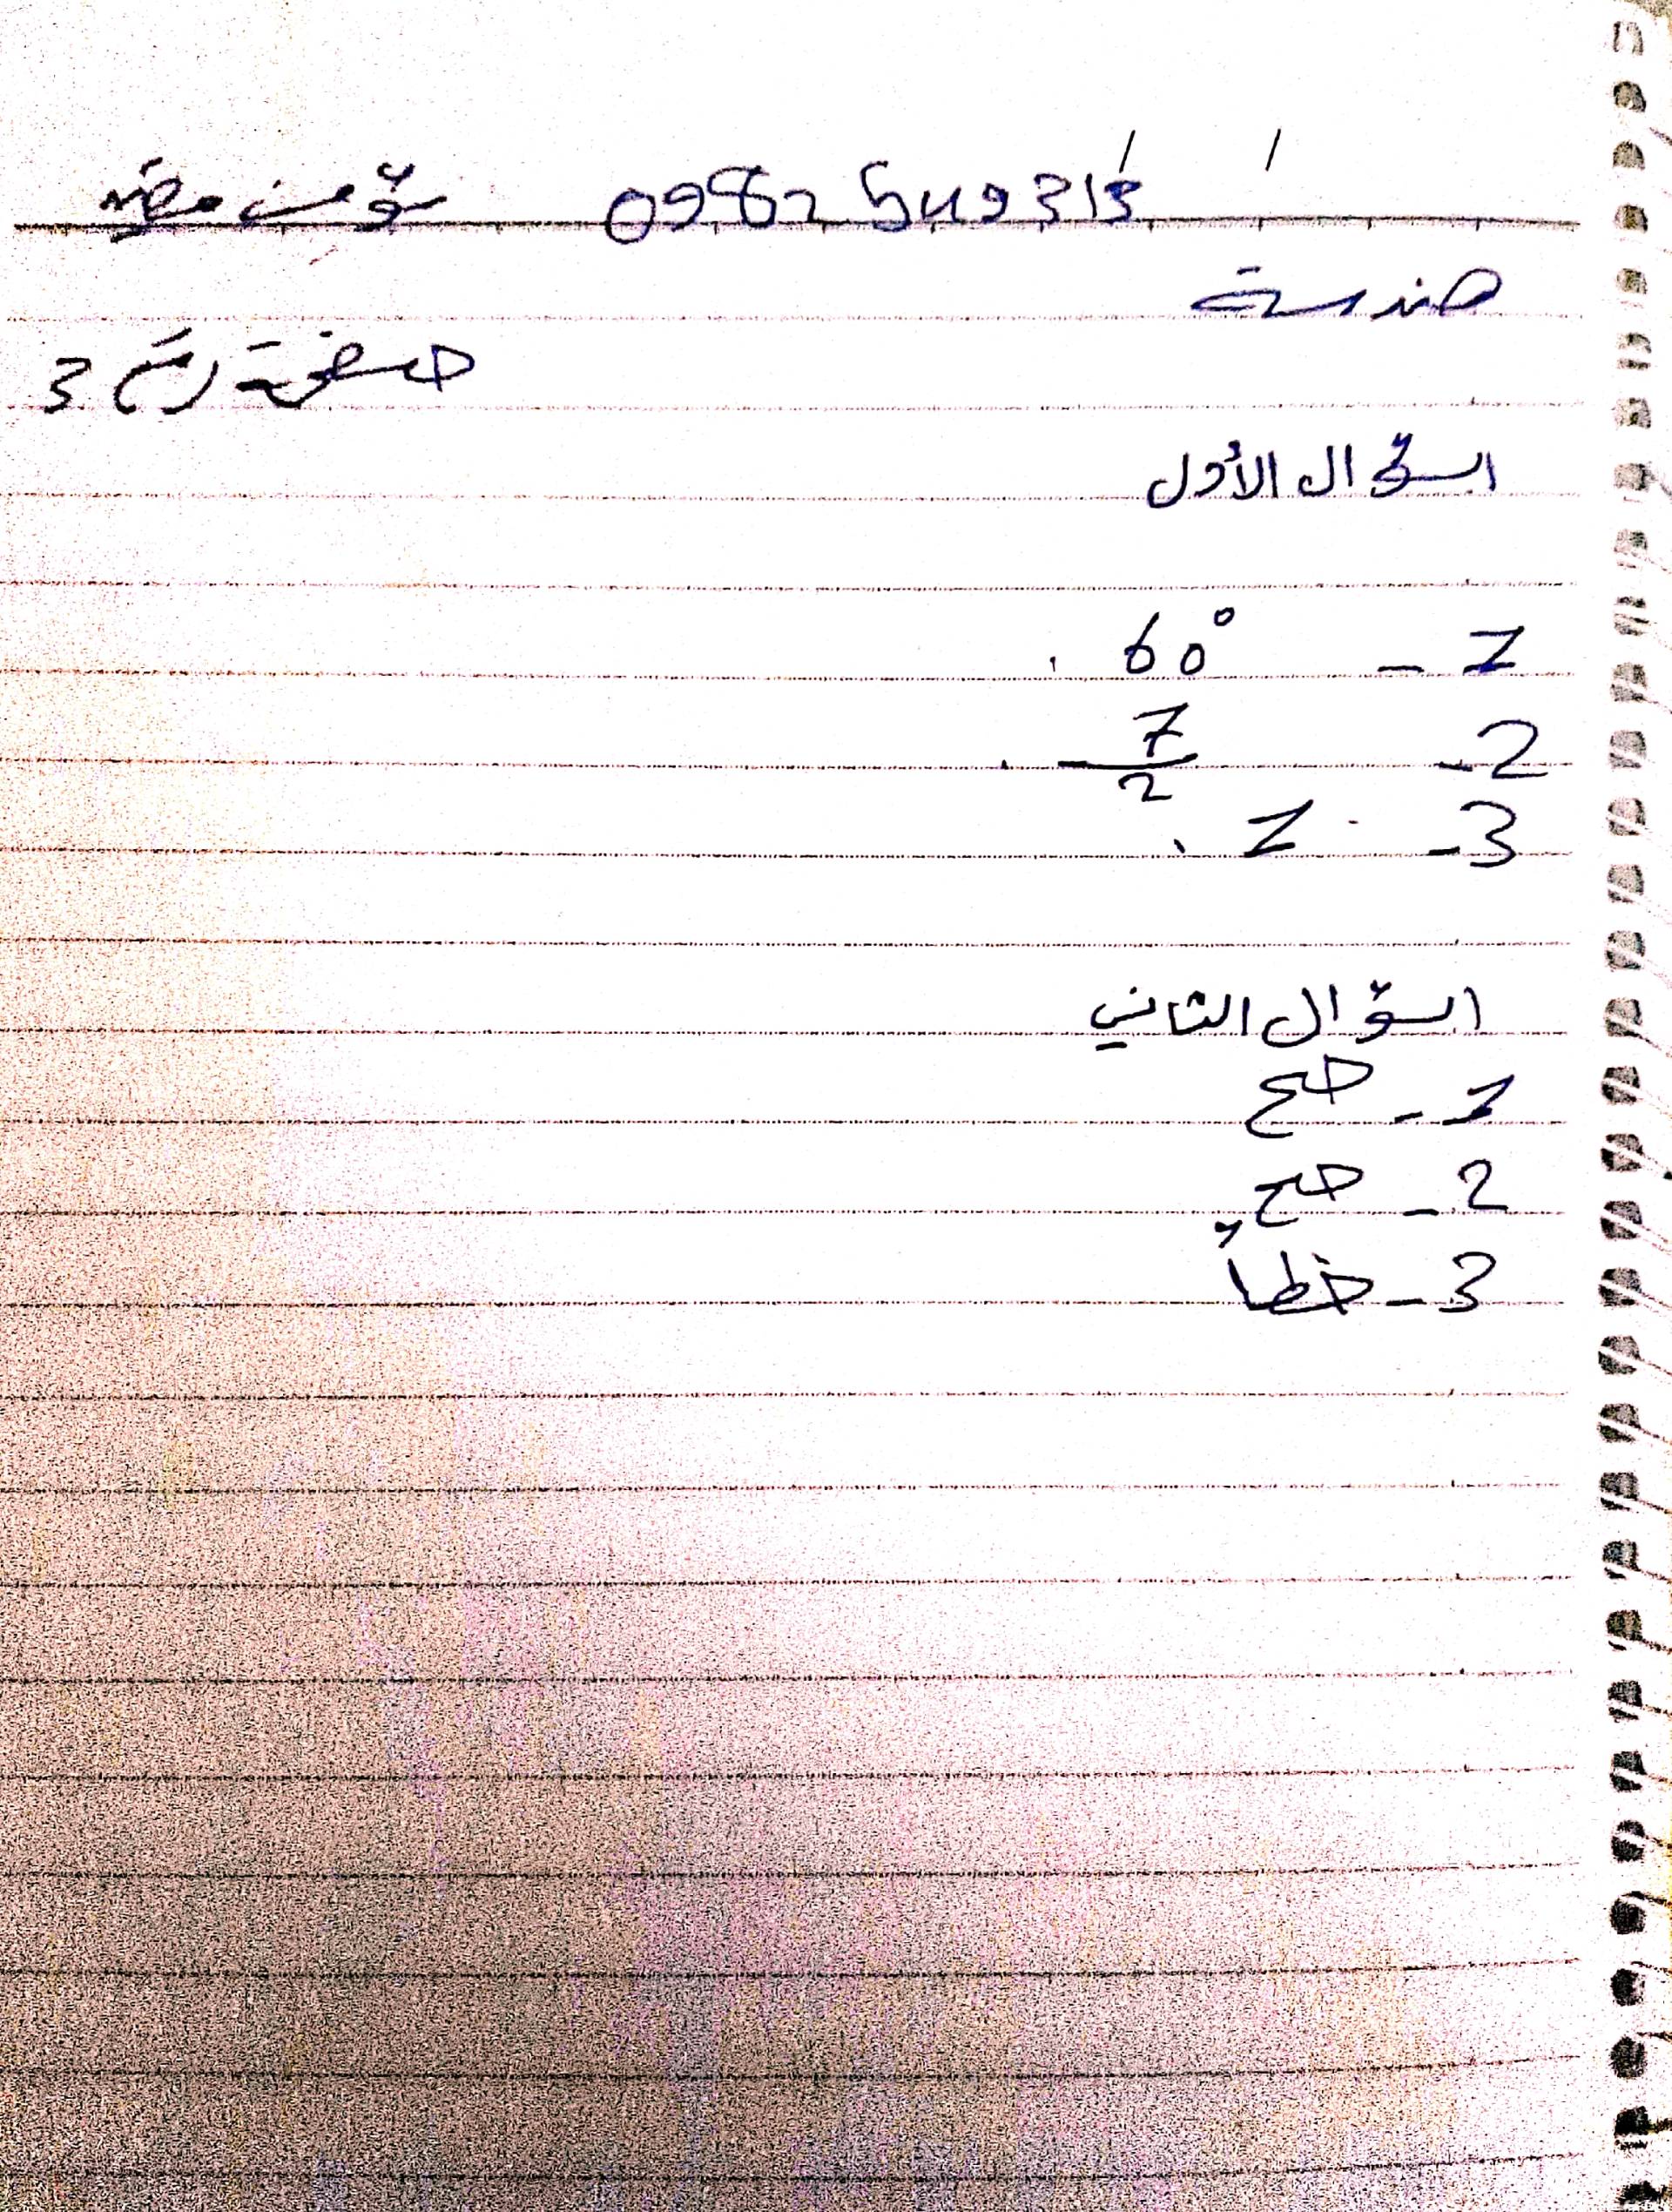 0982549313
هندسة
صفحة رقم 3
السؤال الأول
1 - 60°
2 - 7/2
3 - 1
السؤال الثاني
1 - صح
2 - صح
3 - خطأ